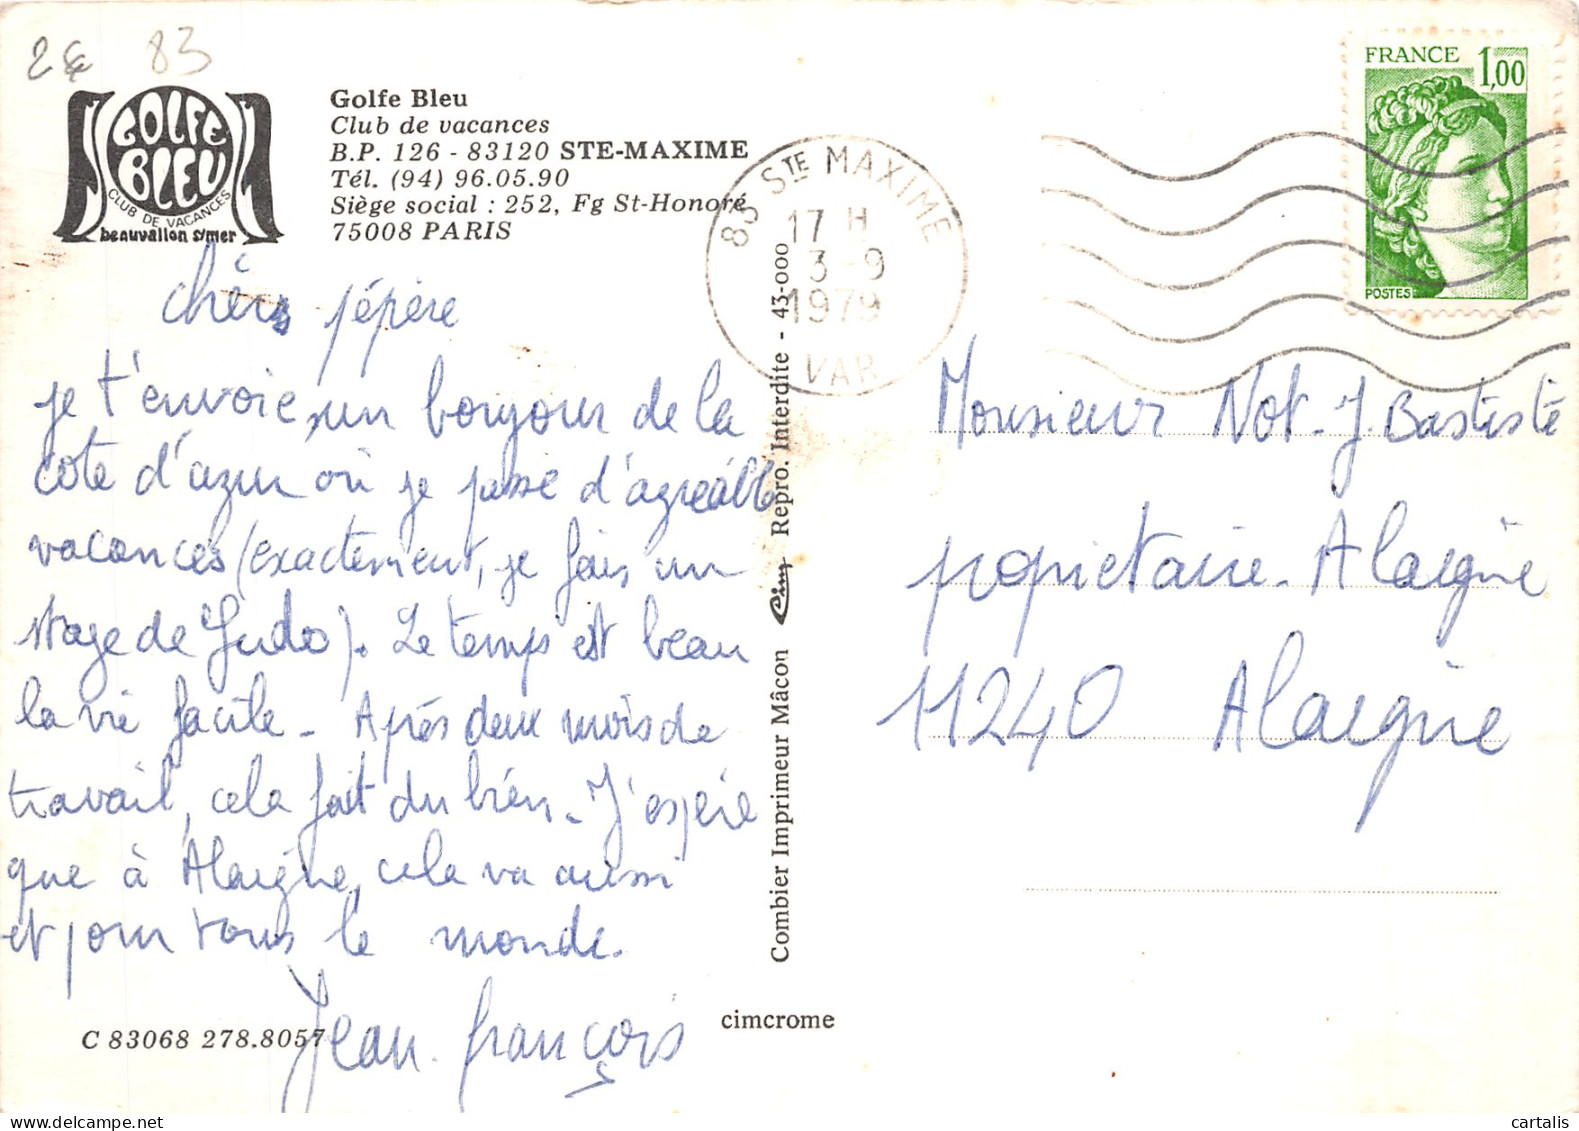 2€ 83
GOLFE
BLEU
CLUB DE VACANCES
beauvallon s/mer
Golfe Bleu
Club de vacances
B.P. 126 - 83120 STE-MAXIME
Tél. (94) 96.05.90
Siège social : 252, Fg St-Honoré
75008 PARIS
83 STE MAXIME
17 H
3-9
1979
VAR
FRANCE 1,00
POSTES
chér pépère
je t'envoie un bonjour de la
cote d'azur où je passe d'agréable
vacances (exactement, je fais un
stage de Judo). Le temps est beau
la vie facile - Après deux mois de
travail, cela fait du bien - J'espère
que à Alaigne, cela va aussi
et pour tous le monde.
Jean-françois
C 83068 278.8057
cimcrome
Combier Imprimeur Mâcon Cim Repro. Interdite - 43-000
Monsieur Not. J. Bastiste
propietaire - Alaigne
11240 Alaigne
cartalis